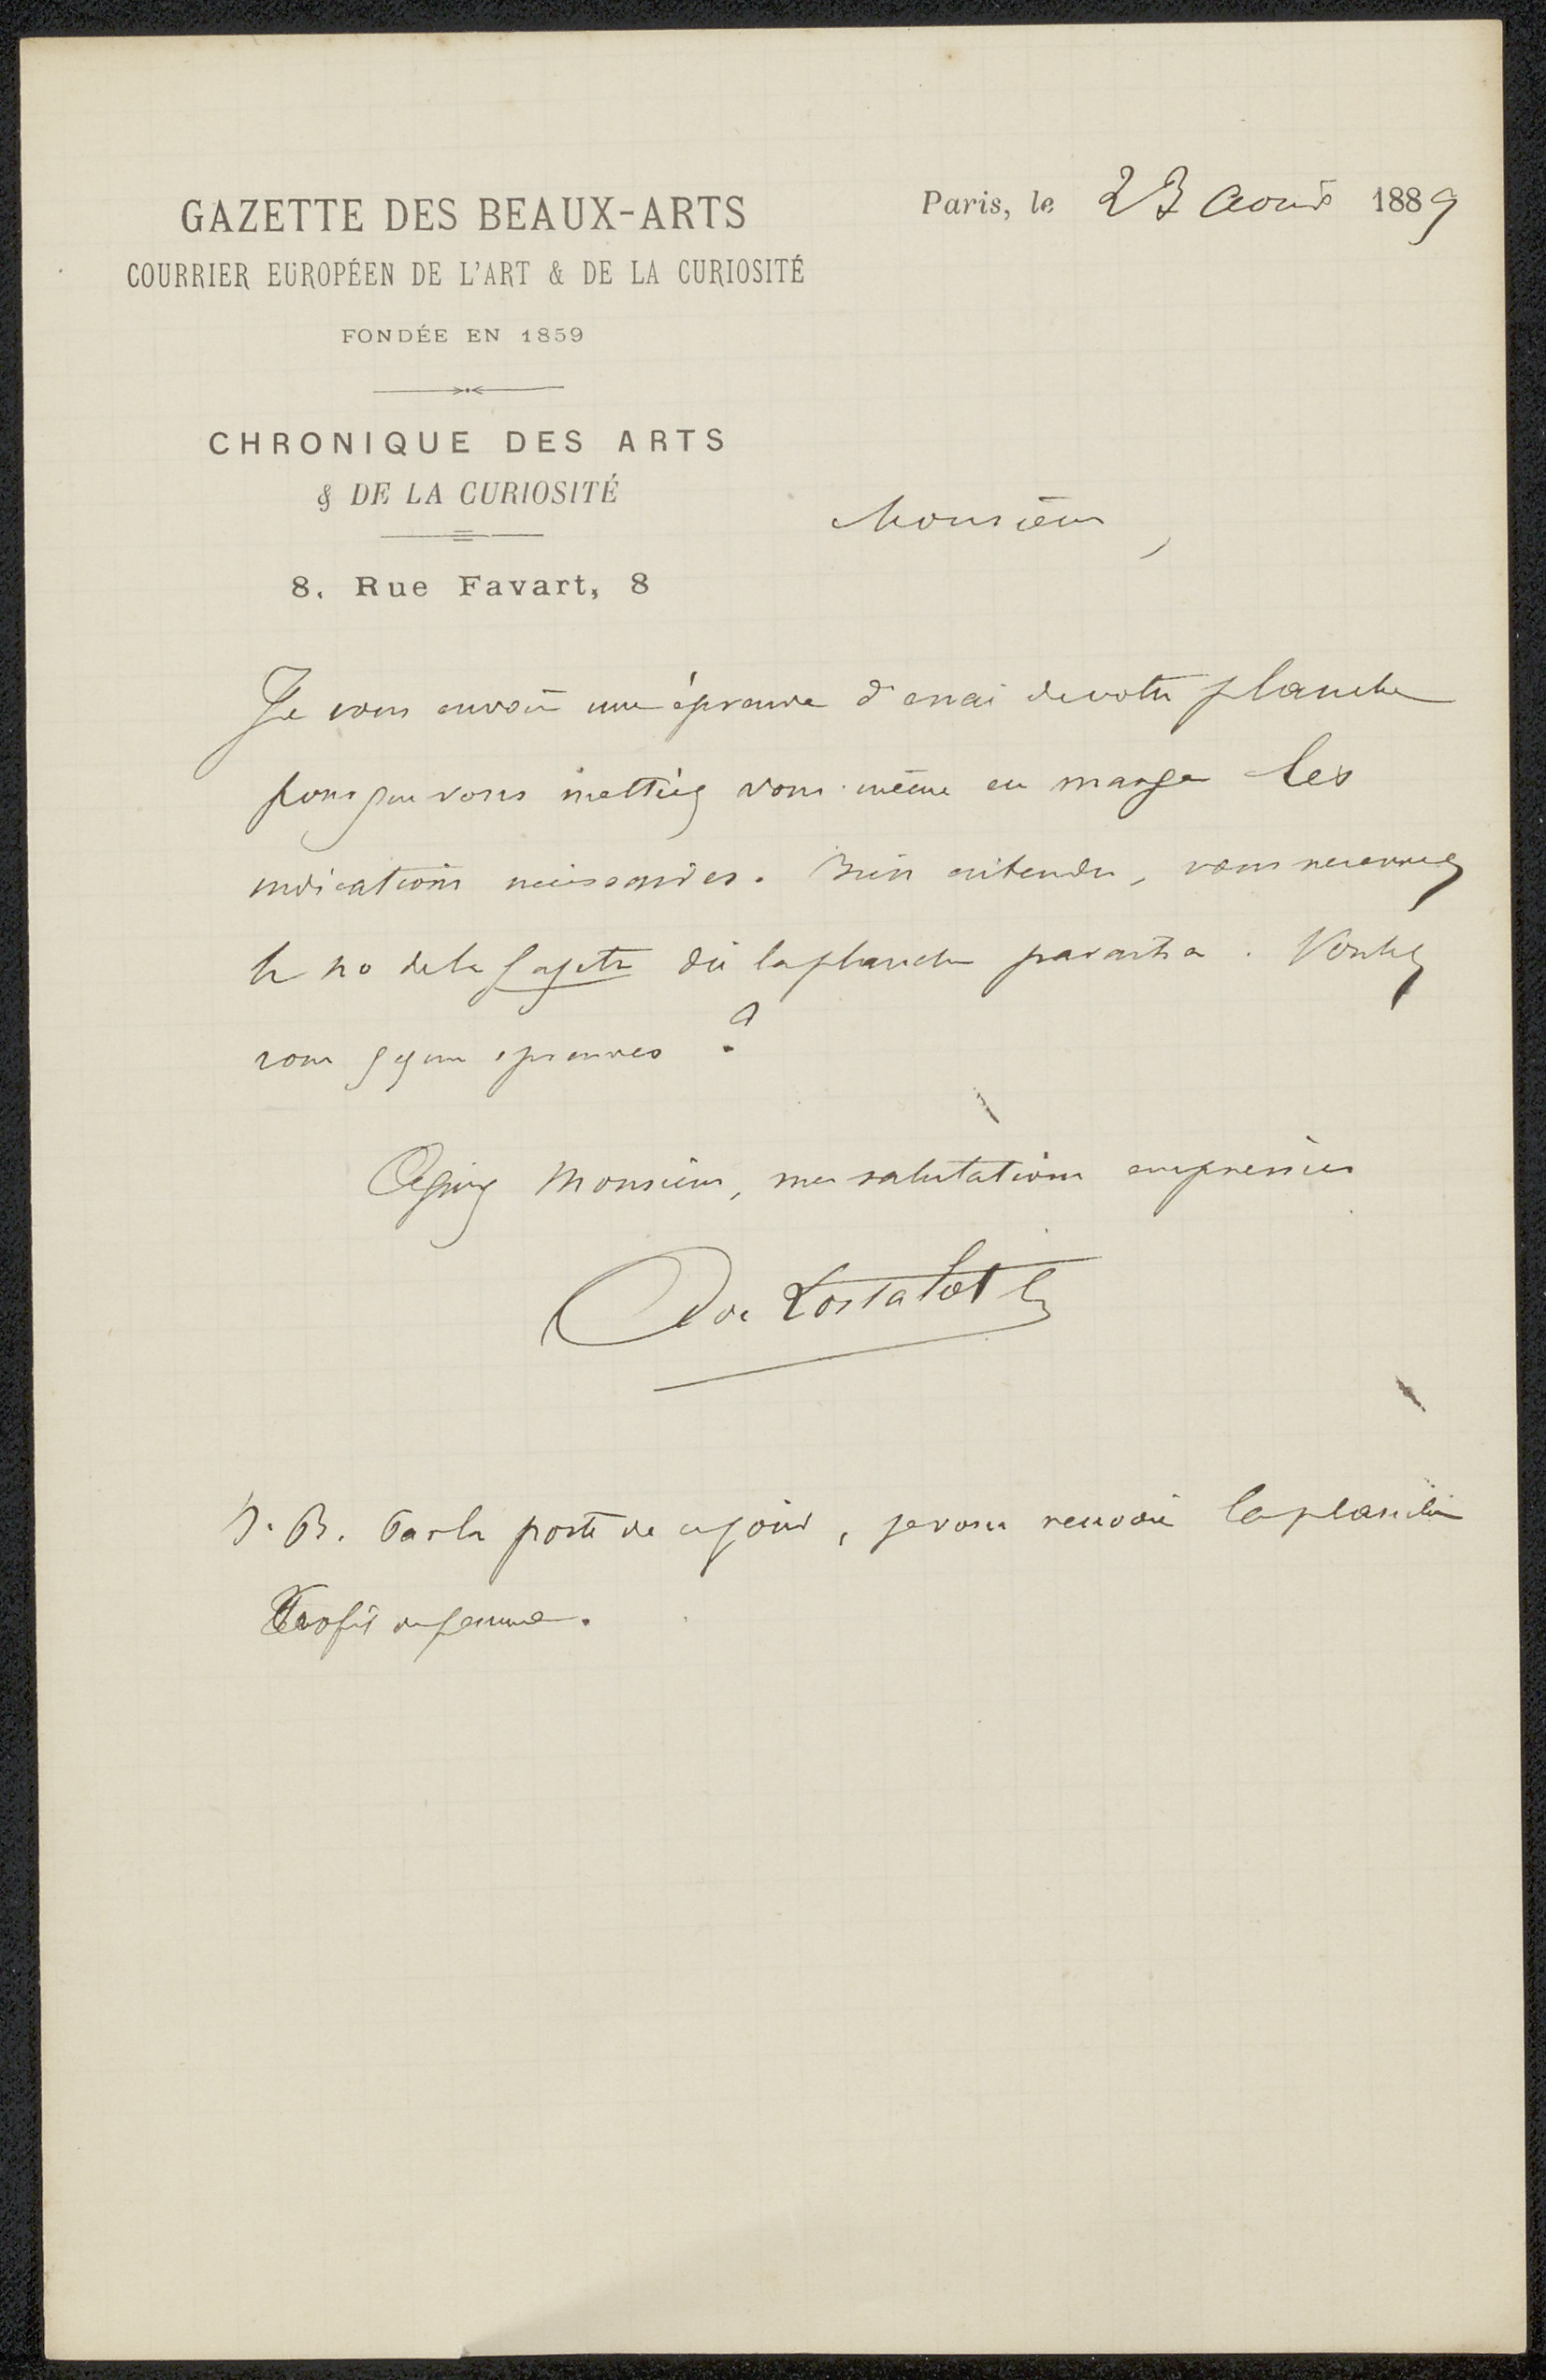 GAZETTE DES BEAUX-ARTS
COURRIER EUROPÉEN DE L'ART & DE LA CURIOSITÉ
FONDÉE EN 1859
CHRONIQUE DES ARTS
& DE LA CURIOSITÉ
8, Rue Favart, 8
Paris, le 23 Aout 1889
Monsieur,
Je vous envoie une épreuve d'essai de votre planche
pour que vous mettiez vous-même en marge les
indications nécessaires. Bien entendu, vous recevrez
le no de la Gazette où la planche paraitra. Voulez
vous épreuves ?
Agréez Monsieur, mes salutations empressées
A de Lostalot
N. B. Par la poste de ce jour, je vous renvoie la planche
Profil de femme.